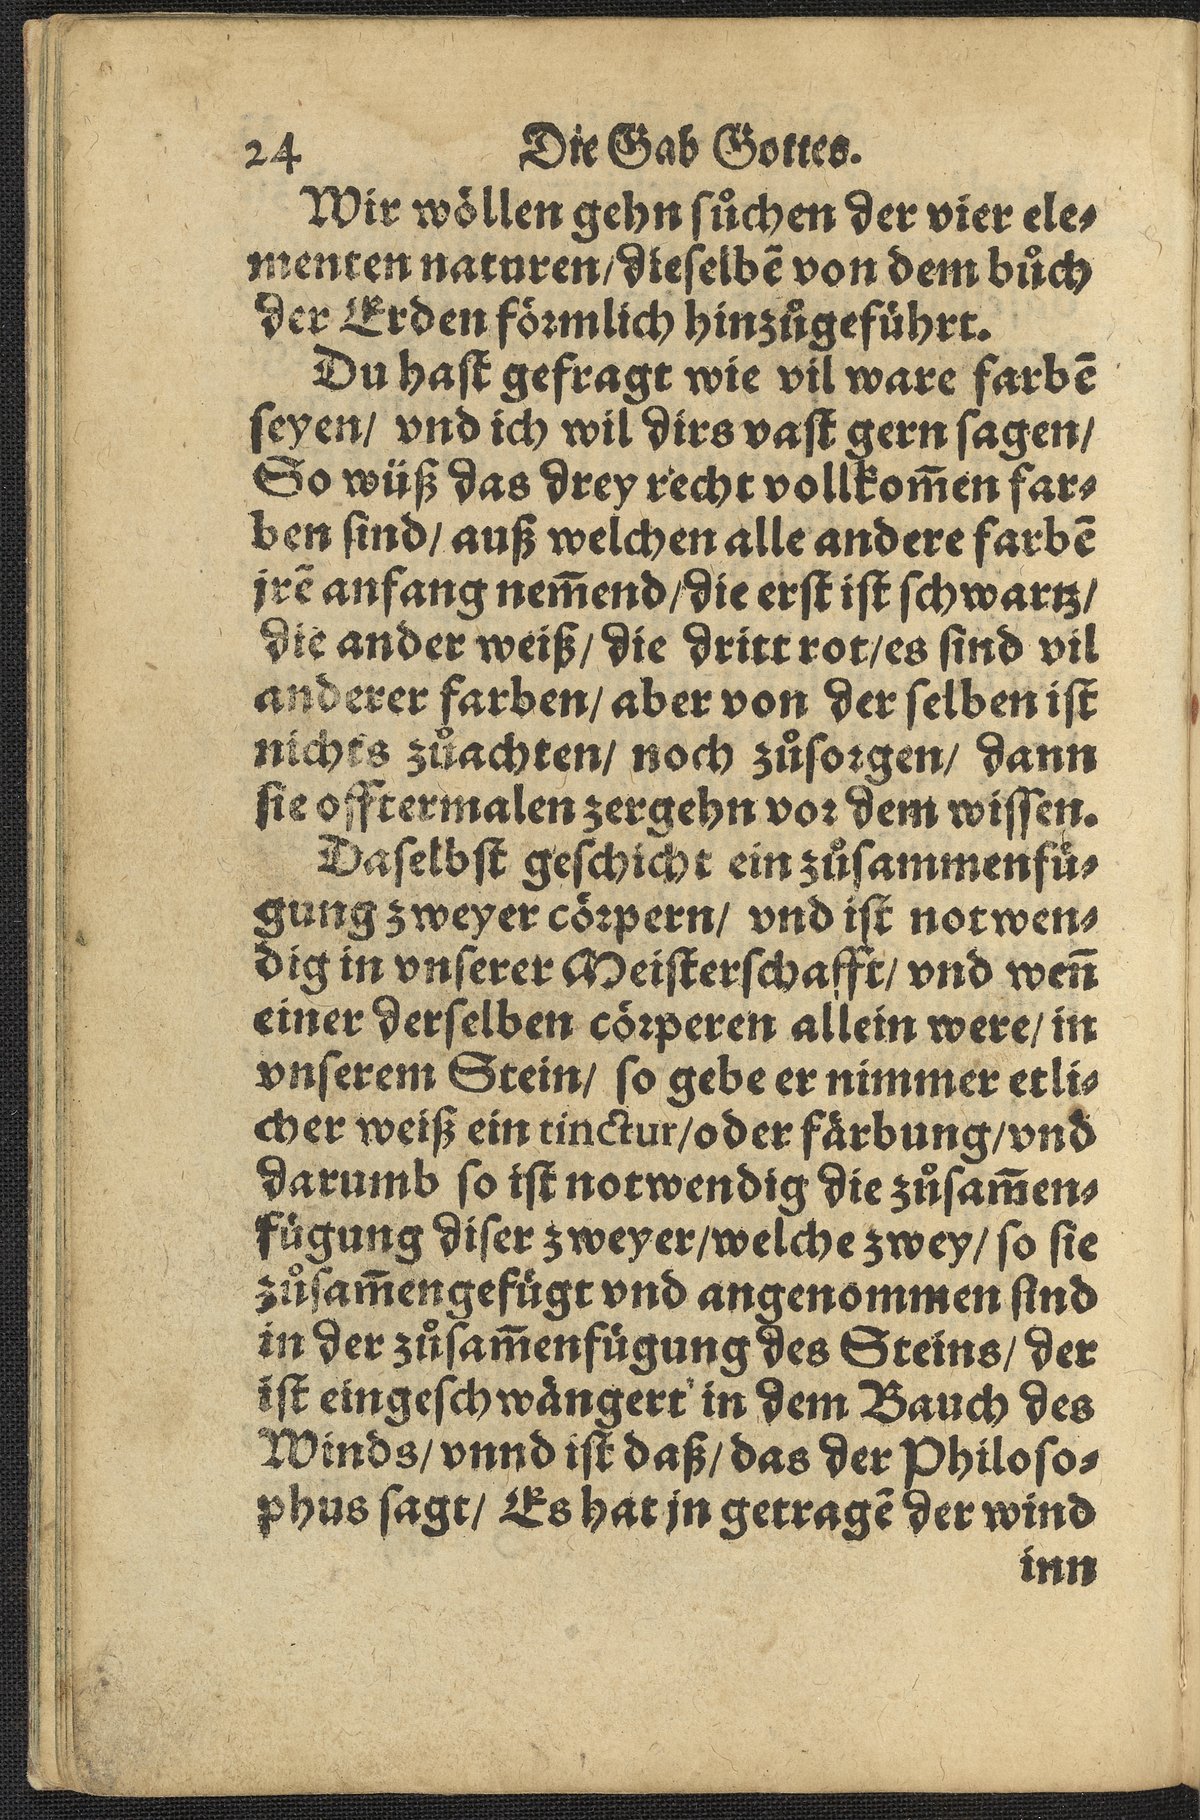 24 Die Gab Gottes.
Wir wöllen gehn sůchen der vier ele⸗
menten naturen/ dieselbē von dem bůch
der Erden förmlich hinzůgeführt.
Du hast gefragt wie vil ware farbē
seyen/ vnd ich wil dirs vast gern sagen/
So wüß das drey recht vollkom̄en far⸗
ben sind/ auß welchen alle andere farbē
jrē anfang nem̄end/ die erst ist schwartz/
die ander weiß/ die dritt rot/ es sind vil
anderer farben/ aber von der selben ist
nichts zůachten/ noch zůsorgen/ dann
sie offtermalen zergehn vor dem wissen.
Daselbst geschicht ein zůsammenfü⸗
gung zweyer cörpern/ vnd ist notwen⸗
dig in vnserer Meisterschafft/ vnd wen̄
einer derselben cörperen allein were/ in
vnserem Stein/ so gebe er nimmer etli⸗
cher weiß ein tinctur/ oder färbung/ vnd
darumb so ist notwendig die zůsam̄en⸗
fügung diser zweyer/ welche zwey/ so sie
zůsam̄engefügt vnd angenommen sind
in der zůsam̄enfügung des Steins/ der
ist eingeschwängert in dem Bauch des
Winds/ vnnd ist daß/ das der Philoso⸗
phus sagt/ Es hat jn getragē der wind
inn